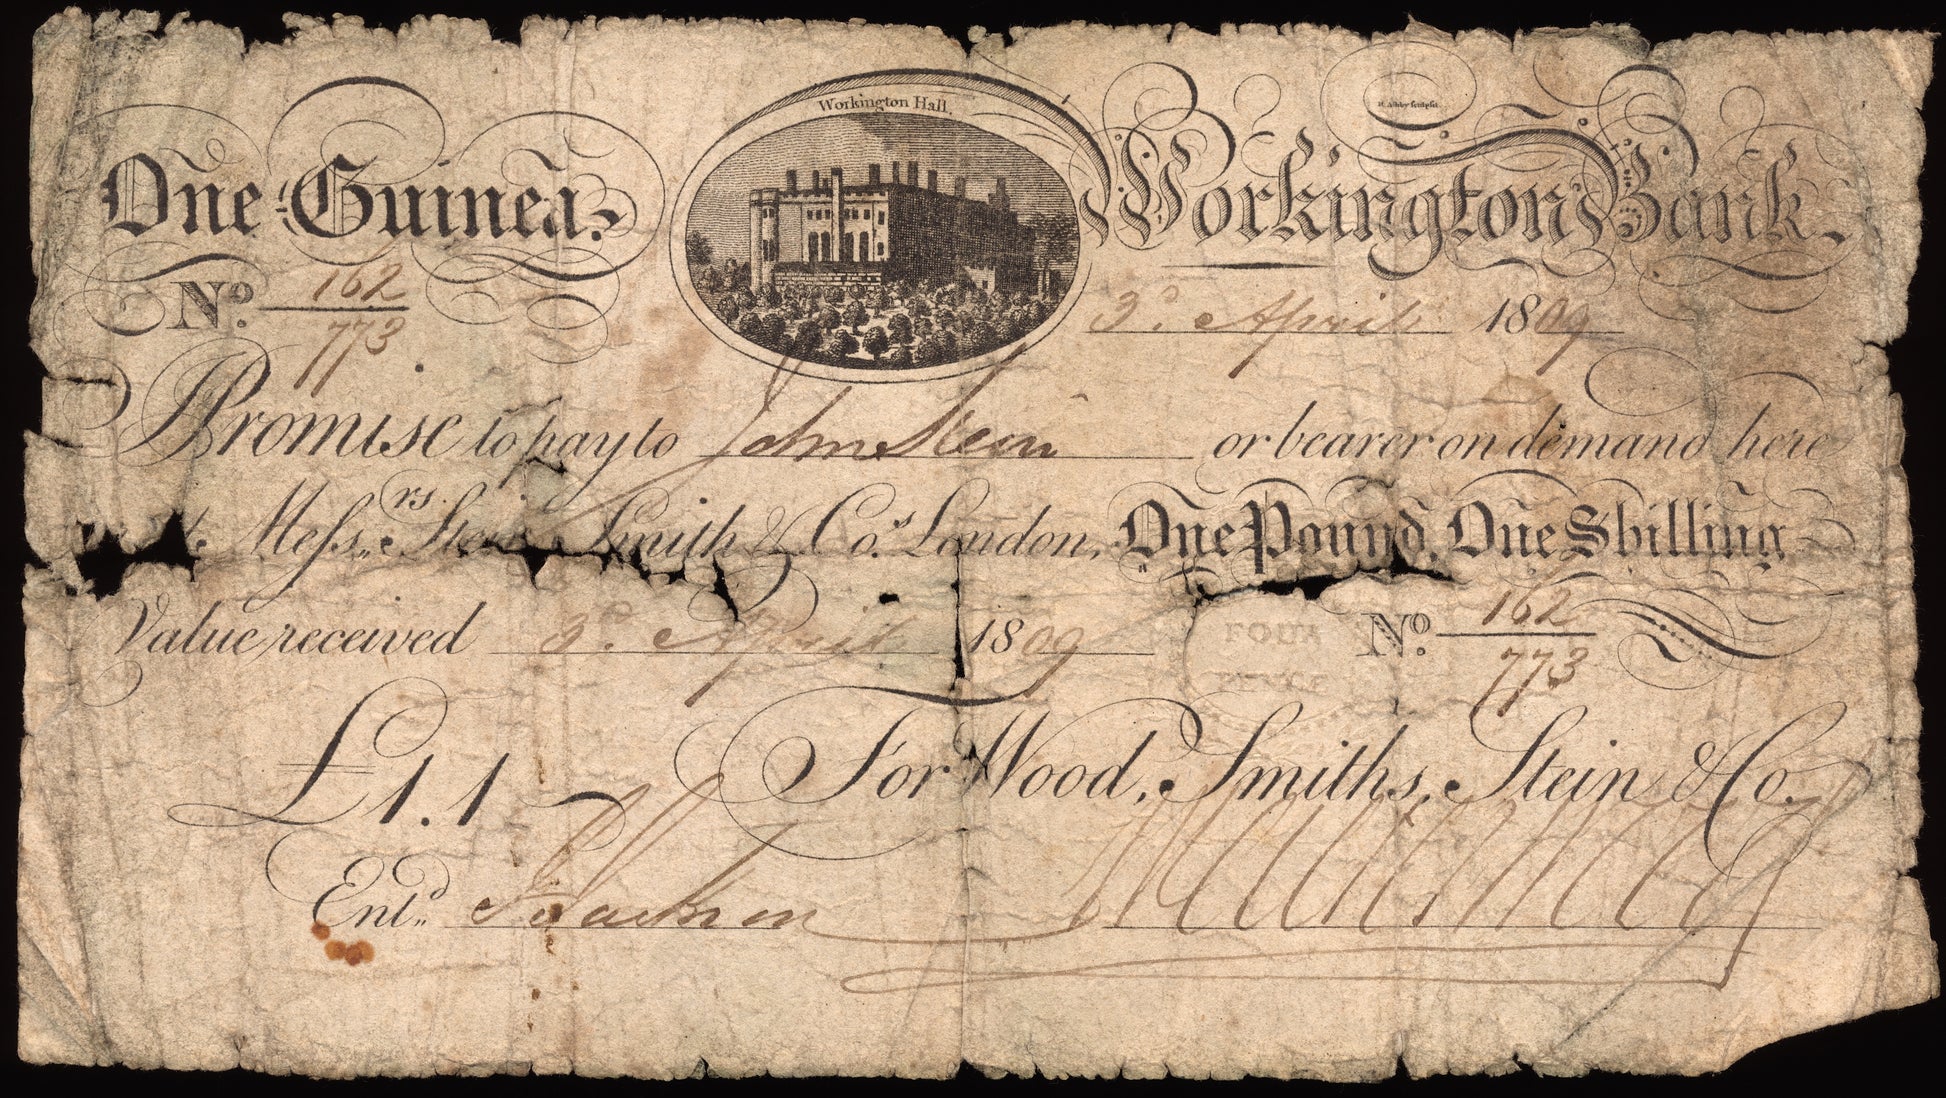 Workington Hall.
H. Ashby sculpsit
One Guinea. Workington Bank.
No. 162
773
3d. April 1809
I Promise to pay to John Stein or bearer on demand here
Messrs. Stein Smith & Co. London, One Pound, One Shilling
Value received 3d. April 1809 No. 162
773
FOUR
PENCE
For Wood, Smiths, Stein & Co.
£1.1
Entd.